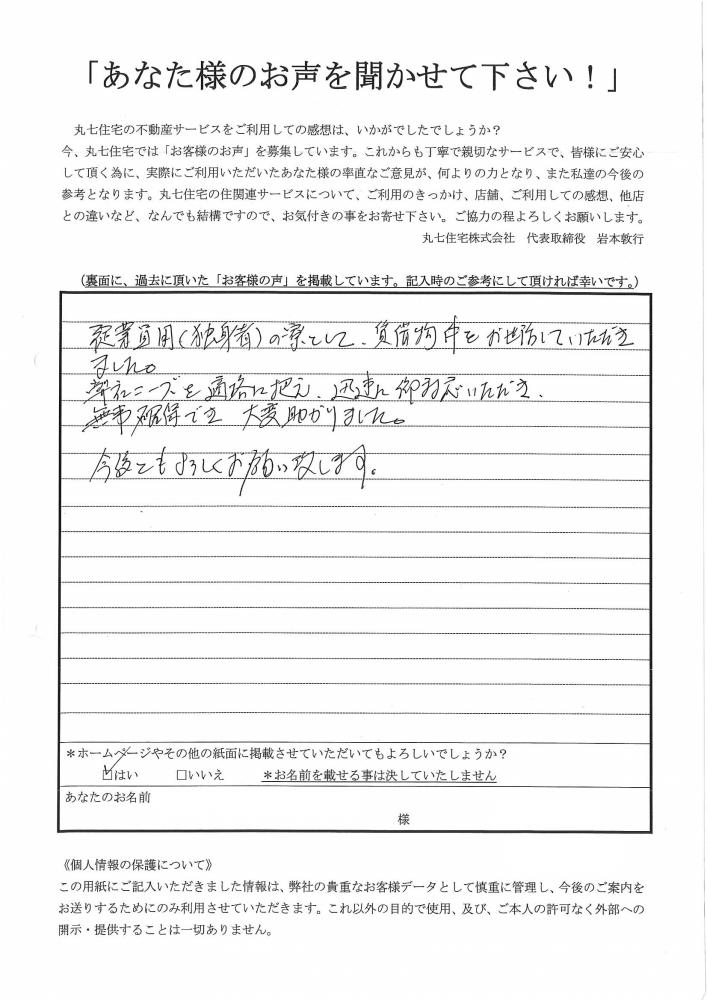 「あなた様のお声を聞かせて下さい！」
丸七住宅の不動産サービスをご利用しての感想は、いかがでしたでしょうか？
今、丸七住宅では「お客様のお声」を募集しています。これからも丁寧で親切なサービスで、皆様にご安心
して頂く為に、実際にご利用いただいたあなた様の率直なご意見が、何よりの力となり、また私達の今後の
参考となります。丸七住宅の住関連サービスについて、ご利用のきっかけ、店舗、ご利用しての感想、他店
との違いなど、なんでも結構ですので、お気付きの事をお寄せ下さい。ご協力の程よろしくお願いします。
丸七住宅株式会社　代表取締役　岩本敦行
（裏面に、過去に頂いた「お客様の声」を掲載しています。記入時のご参考にして頂ければ幸いです。）
従業員用（独身者）の寮として、賃借物件をお世話していただき
ました。
弊社ニーズを適格に把え、迅速に御対応いただき、
無事確保でき 大変助かりました。
今後ともよろしくお願い致します。
＊ホームページやその他の紙面に掲載させていただいてもよろしいでしょうか？
☑はい　□いいえ　＊お名前を載せる事は決していたしません
あなたのお名前
様
《個人情報の保護について》
この用紙にご記入いただきました情報は、弊社の貴重なお客様データとして慎重に管理し、今後のご案内を
お送りするためにのみ利用させていただきます。これ以外の目的で使用、及び、ご本人の許可なく外部への
開示・提供することは一切ありません。